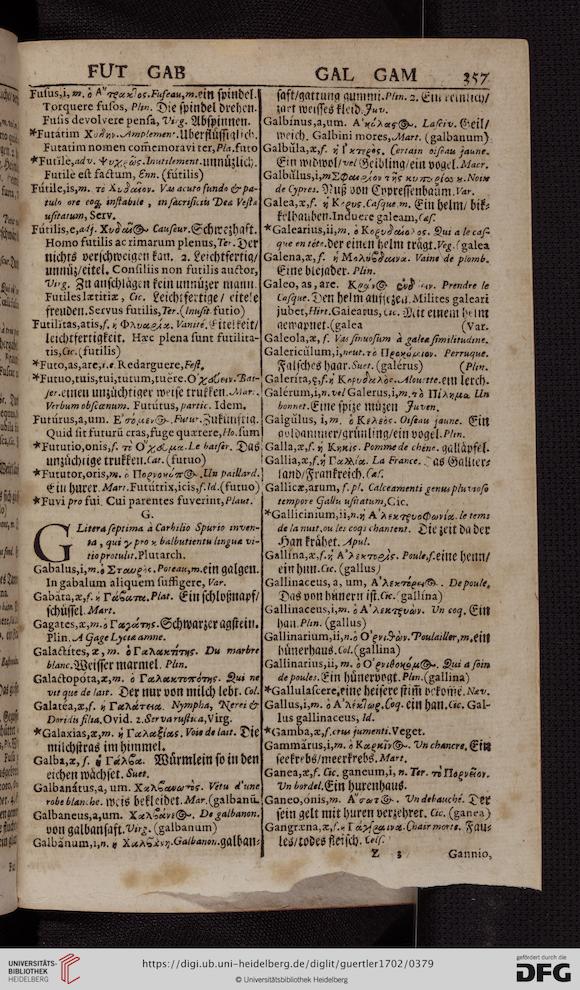 FUT GAB GAL GAM 357
Fusus,i, m. ὁ Ἄτρακτος. Fuseau,m. ein spindel.
Torquere fusos, Plin. Die spindel drehen.
Fusis devolvere pensa, Virg. Abspinnen.
*Futátim Χύδην. Amplement. Uberflüssiglich.
Futatim nomen commemoravi ter, Pla. futo
*Futile, adv. Ψυχρῶς. Inutilement. unnüzlich.
Futile est factum, Enn. (futilis)
Fútile,is,m. Vas acuto fundo & patulo
ore eoq; instabile, in sacrificiis Deæ Vestæ
usitatum, Serv.
Fútilis,e,adj. Causeur. Schwezhaft.
Homo futilis ac rimarum plenus, Ter. Der
nichts verschweigen kan. 2. Leichtfertig/
unnüz/eitel. Consiliis non futilis auctor,
Virg. Zu anschlägen kein unnüzer mann.
Futiles lætitiæ, Cic. Leichtfertige/ eitele
freuden. Servus futilis, Ter. (inusit. futio)
Futilitas,atis,f. ἡ Φλυαρία. Vanité. Eitelkeit/
leichtfertigkeit. Hæc plena sunt futilitatis,
Cic. (futilis)
*Futo,as,are, i.e. Redarguere, Fest.
*Futuo,tuis,tui,tutum,tuere.
Verbum obscœnum. Futútus, partic. Idem.
Futúrus,a,um. Futur. Zukünftig.
Quid sit futurū cras, fuge quærere, Ho. sum
*Fututio,onis,f. Le baiser. Das
unzüchtige trukken. Cat. (futuo)
*Fututor,oris,m. Un paillard.
Ein hurer. Mart. Fututrix,icis,f. Id. (futuo)
*Fuvi pro fui. Cui parentes fuverint, Plaut.
G.
G Litera septima à Carbilio Spurio inventa,
qui γ pro κ balbutientu lingua vitio
protulit. Plutarch.
Gabalus,i,m. ὁ Σταυρός. Poteau,m. ein galgen.
In gabalum aliquem suffigere, Var.
Gabáta,æ,f. Plat. Ein schlosnapf/
schüssel. Mart.
Gagates,æ,m. ὁ Γαγάτης. Schwarzer agstein.
Plin. A Gage Lyciæ amne.
Galactites, æ, m. Du marbre
blanc. Weisser marmel. Plin.
Galactopóta,æ,m. Qui ne
vit que de lait. Der nur von milch lebt. Col.
Galatéa,æ,f. ἡ Γαλάτεια. Nympha, Nerei &
Doridis filia, Ovid. 2. Serva rustica, Virg.
*Galaxias,æ,m. ὁ Γαλαξίας. Voie de lait. Die
milchstras im himmel.
Galba,æ,f. Würmlein so in den
eichen wächset. Suet.
Galbanátus,a,um. Vêtu d'une
robe blanche. weis bekleidet. Mar. (galbanū.
Galbaneus,a,um. De galbanon.
von galbansaft. Virg. (galbanum)
Galbănum,i,n. Galbanon. galbansaft/
gattung gummi. Plin. 2. Ein reinlich/
zart weisses kleid. Juv.
Galbínus,a,um. Lasciv. Geil/
weich. Galbini mores, Mart. (galbanum)
Galbŭla,æ,f. Certain oiseau jaune.
Ein widwol/vel Geibling/ein vogel. Macr.
Galbŭlus,i,m Noix
de Cypres. Nuß von Cypressenbaum. Var.
Galea,æ,f. Casque.m. Ein helm/ bikkelhauben.
Induere galeam, Cæs.
*Galearius,ii,m. Qui a le casque
en tête. der einen helm trägt. Veg. (galea
Galena,æ,f. Vaine de plomb.
Eine bleyader. Plin.
Galeo,as,are. Prendre le
Casque. Den helm aufsezen. Milites galeari
jubet, Hirt. Galeatus, Cic. Mit einem helm
gewapnet. (galea (Var.
Galeola,æ, f. Vas sinuosum à galeæ similitudine.
Galericŭlum,i,neut. Perruque.
Falsches haar. Suet. (galérus) (Plin.
Galeríta,ę,f. Alouette. ein lerch.
Galérum,i,n. vel Galerus,i,m. Un
bonnet. Eine spize müzen Juven.
Galgŭlus, i, m. ὁ Κελεός. Oiseau jaune. Ein
goldammer/grünling/ein vogel. Plin.
Galla,æ,f. ἡ Κηκίς. Pomme de chêne. galläpfel.
Gallia,æ,f. ἡ Γαλλία. La France. Das Gallierland/
Frankreich. Cæs.
Gallicæ,arum, f. pl. Calceamenti genus pluvioso
tempore Gallis usitatum, Cic.
*Gallicinium,ii,n. le tems
de la nuit, ou les coqs chantent. Die zeit da der
Han krähet. Apul.
Gallína,æ,f. Poule,f. eine henn/
ein hun. Cic. (gallus)
Gallinaceus,a, um, De poule.
Das von hünern ist. Cic. (gallina)
Gallinaceus,i,m. ὁ Ἀλεκτρυών. Un coq. Ein
han. Plin. (gallus)
Gallinarium,ii,n. Poulailler,m. ein
hünerhaus. Col. (gallina)
Gallinarius,ii, m. Qui a soin
de poules. Ein hünervogt. Cic. (gallina)
*Gallulascere, eine heisere stim bekome. Næv.
Gallus,i,m. ὁ Ἀλέκτωρ. Coq. ein han. Cic. Gallus
gallinaceus, Id.
*Gamba,æ,f. crus jumenti. Veget.
Gammărus,i,m. Un chancre. Ein
seekrebs/meerkrebs. Mart.
Ganea,æ,f. Cic. ganeum,i, n. Ter. τὸ Πορνεῖον.
Un bordel. Ein hurenhaus.
Ganeo,onis,m. Un debauché. Der
sein gelt mit huren verzehret. Cic. (ganea)
Gangræna,æ,f. ἡ Γάγγραινα. Chair morte. Faules/
todes fleisch. Cels.
Z 3 Gannio,
UNIVERSITÄTS-
BIBLIOTHEK
HEIDELBERG
https://digi.ub.uni-heidelberg.de/diglit/guertler1702/0379
© Universitätsbibliothek Heidelberg
gefördert durch die
DFG